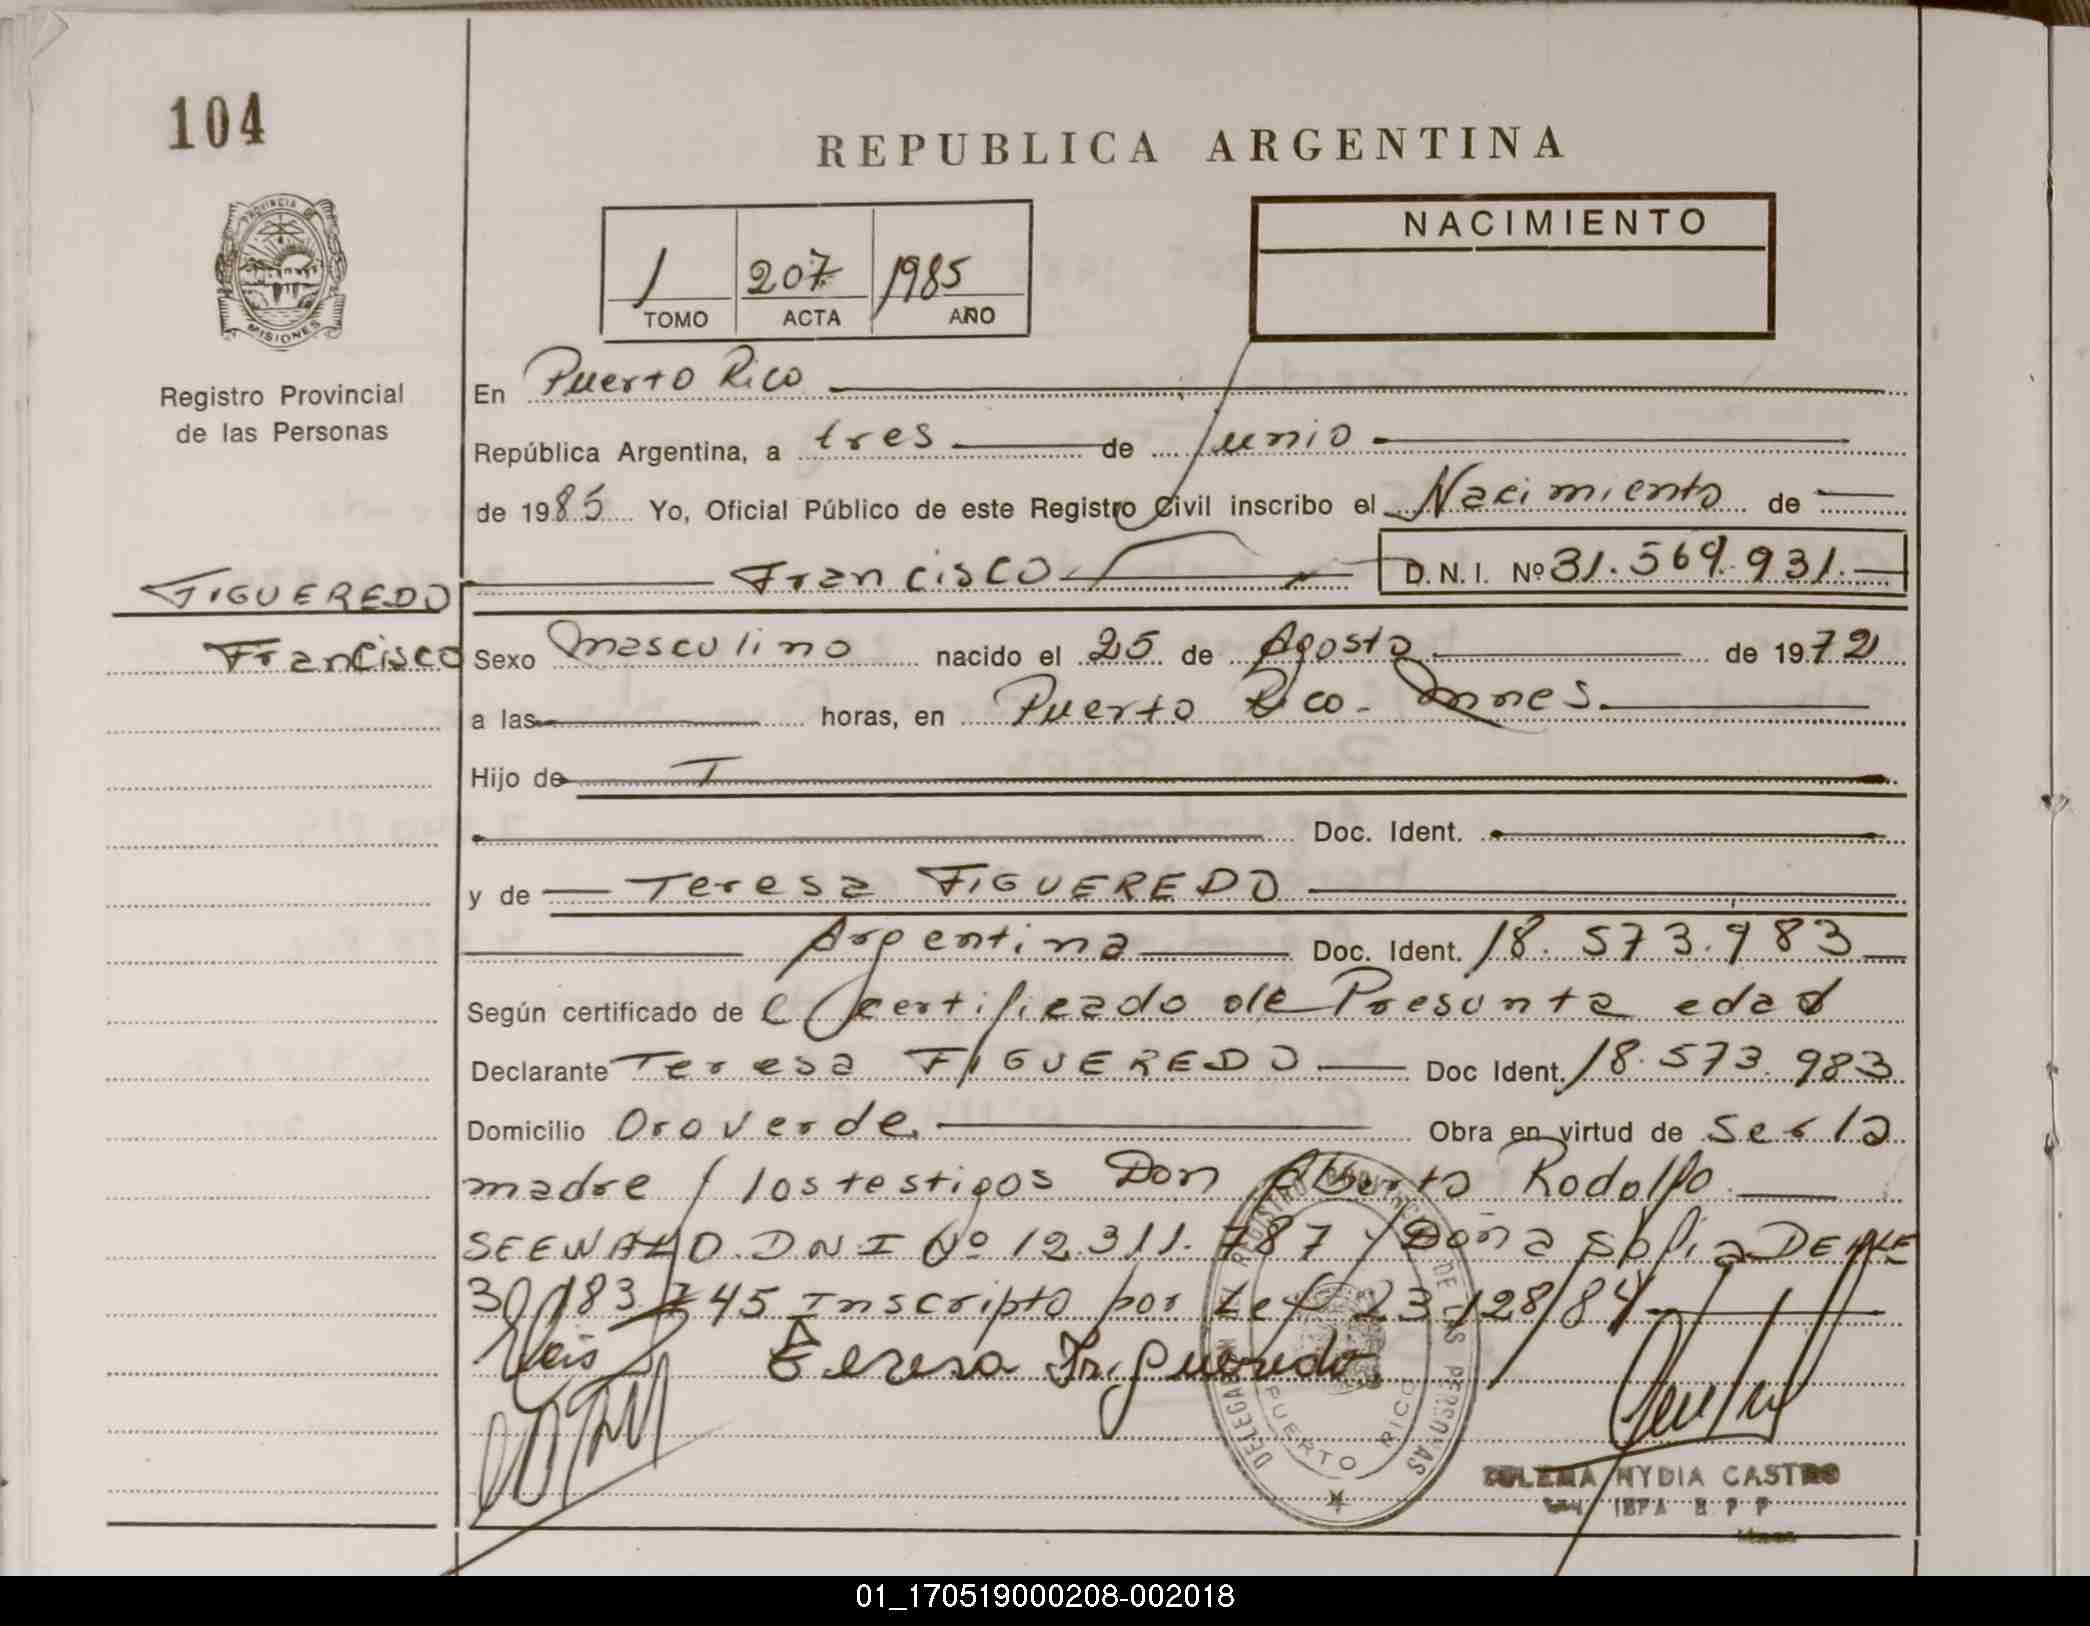 104
REPUBLICA ARGENTINA
PROVINCIA DE
MISIONES
Registro Provincial
de las Personas
1 207 1985
TOMO ACTA AÑO
NACIMIENTO
En Puerto Rico
República Argentina, a tres de Junio
de 1985 Yo, Oficial Público de este Registro Civil inscribo el Nacimiento de
FIGUEREDO Francisco D.N.I. Nº 31.569.931.
Francisco Sexo masculino nacido el 25 de Agosto de 1972
a las horas, en Puerto Rico - Mnes.
Hijo de
Doc. Ident.
y de Teresa FIGUEREDO
Argentina Doc. Ident. 18.573.983
Según certificado de certificado de Presunta edad
Declarante Teresa FIGUEREDO Doc Ident. 18.573.983
Domicilio Oro Verde. Obra en virtud de ser la
madre y los testigos Don Alberto Rodolfo
SEEWALD DNI Nº 12.311.787 y Doña Sofia
745 Inscripto por Ley 23.128/84
Teresa Figueredo
DELEGACION DEL REGISTRO PROVINCIAL DE LAS PERSONAS
PUERTO RICO
NYDIA CASTRO
01_170519000208-002018